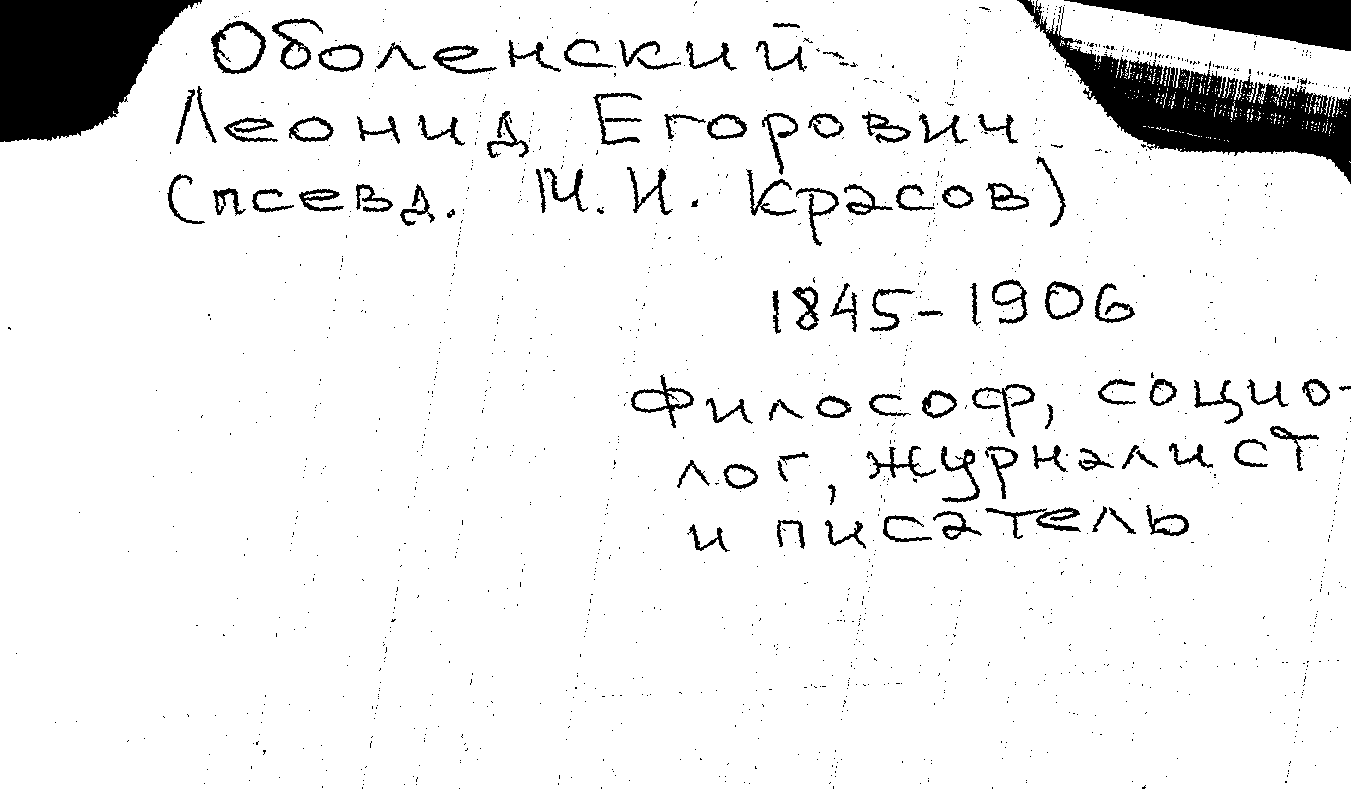 Оболенский
Леонид Егорович
(псевд. М.И. Красов)
1845-1906
Философ, социо-
лог, журналист
и писатель